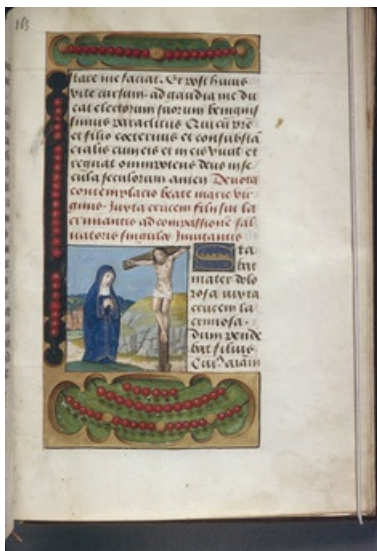 stare me faciat. Et post huius
vite cursum. ad gaudia me du
cat electorum suorum benignis
simus paraclitus Qui cū pr̄e
et filio coeternus et consubstā
cialis cum eis et in eis viuit et
regnat omnipotens deus in se
cula seculorum amen Deuota
contemplacio beate marie vir
ginis. Juxta crucem filij sui la
crimantis ad compassionē sal
uatoris singulos Inuitantis
Sta
bat
mater dolo
rosa iuxta
crucem la
crimosa.
dum pende
bat filius
Cuius aīam